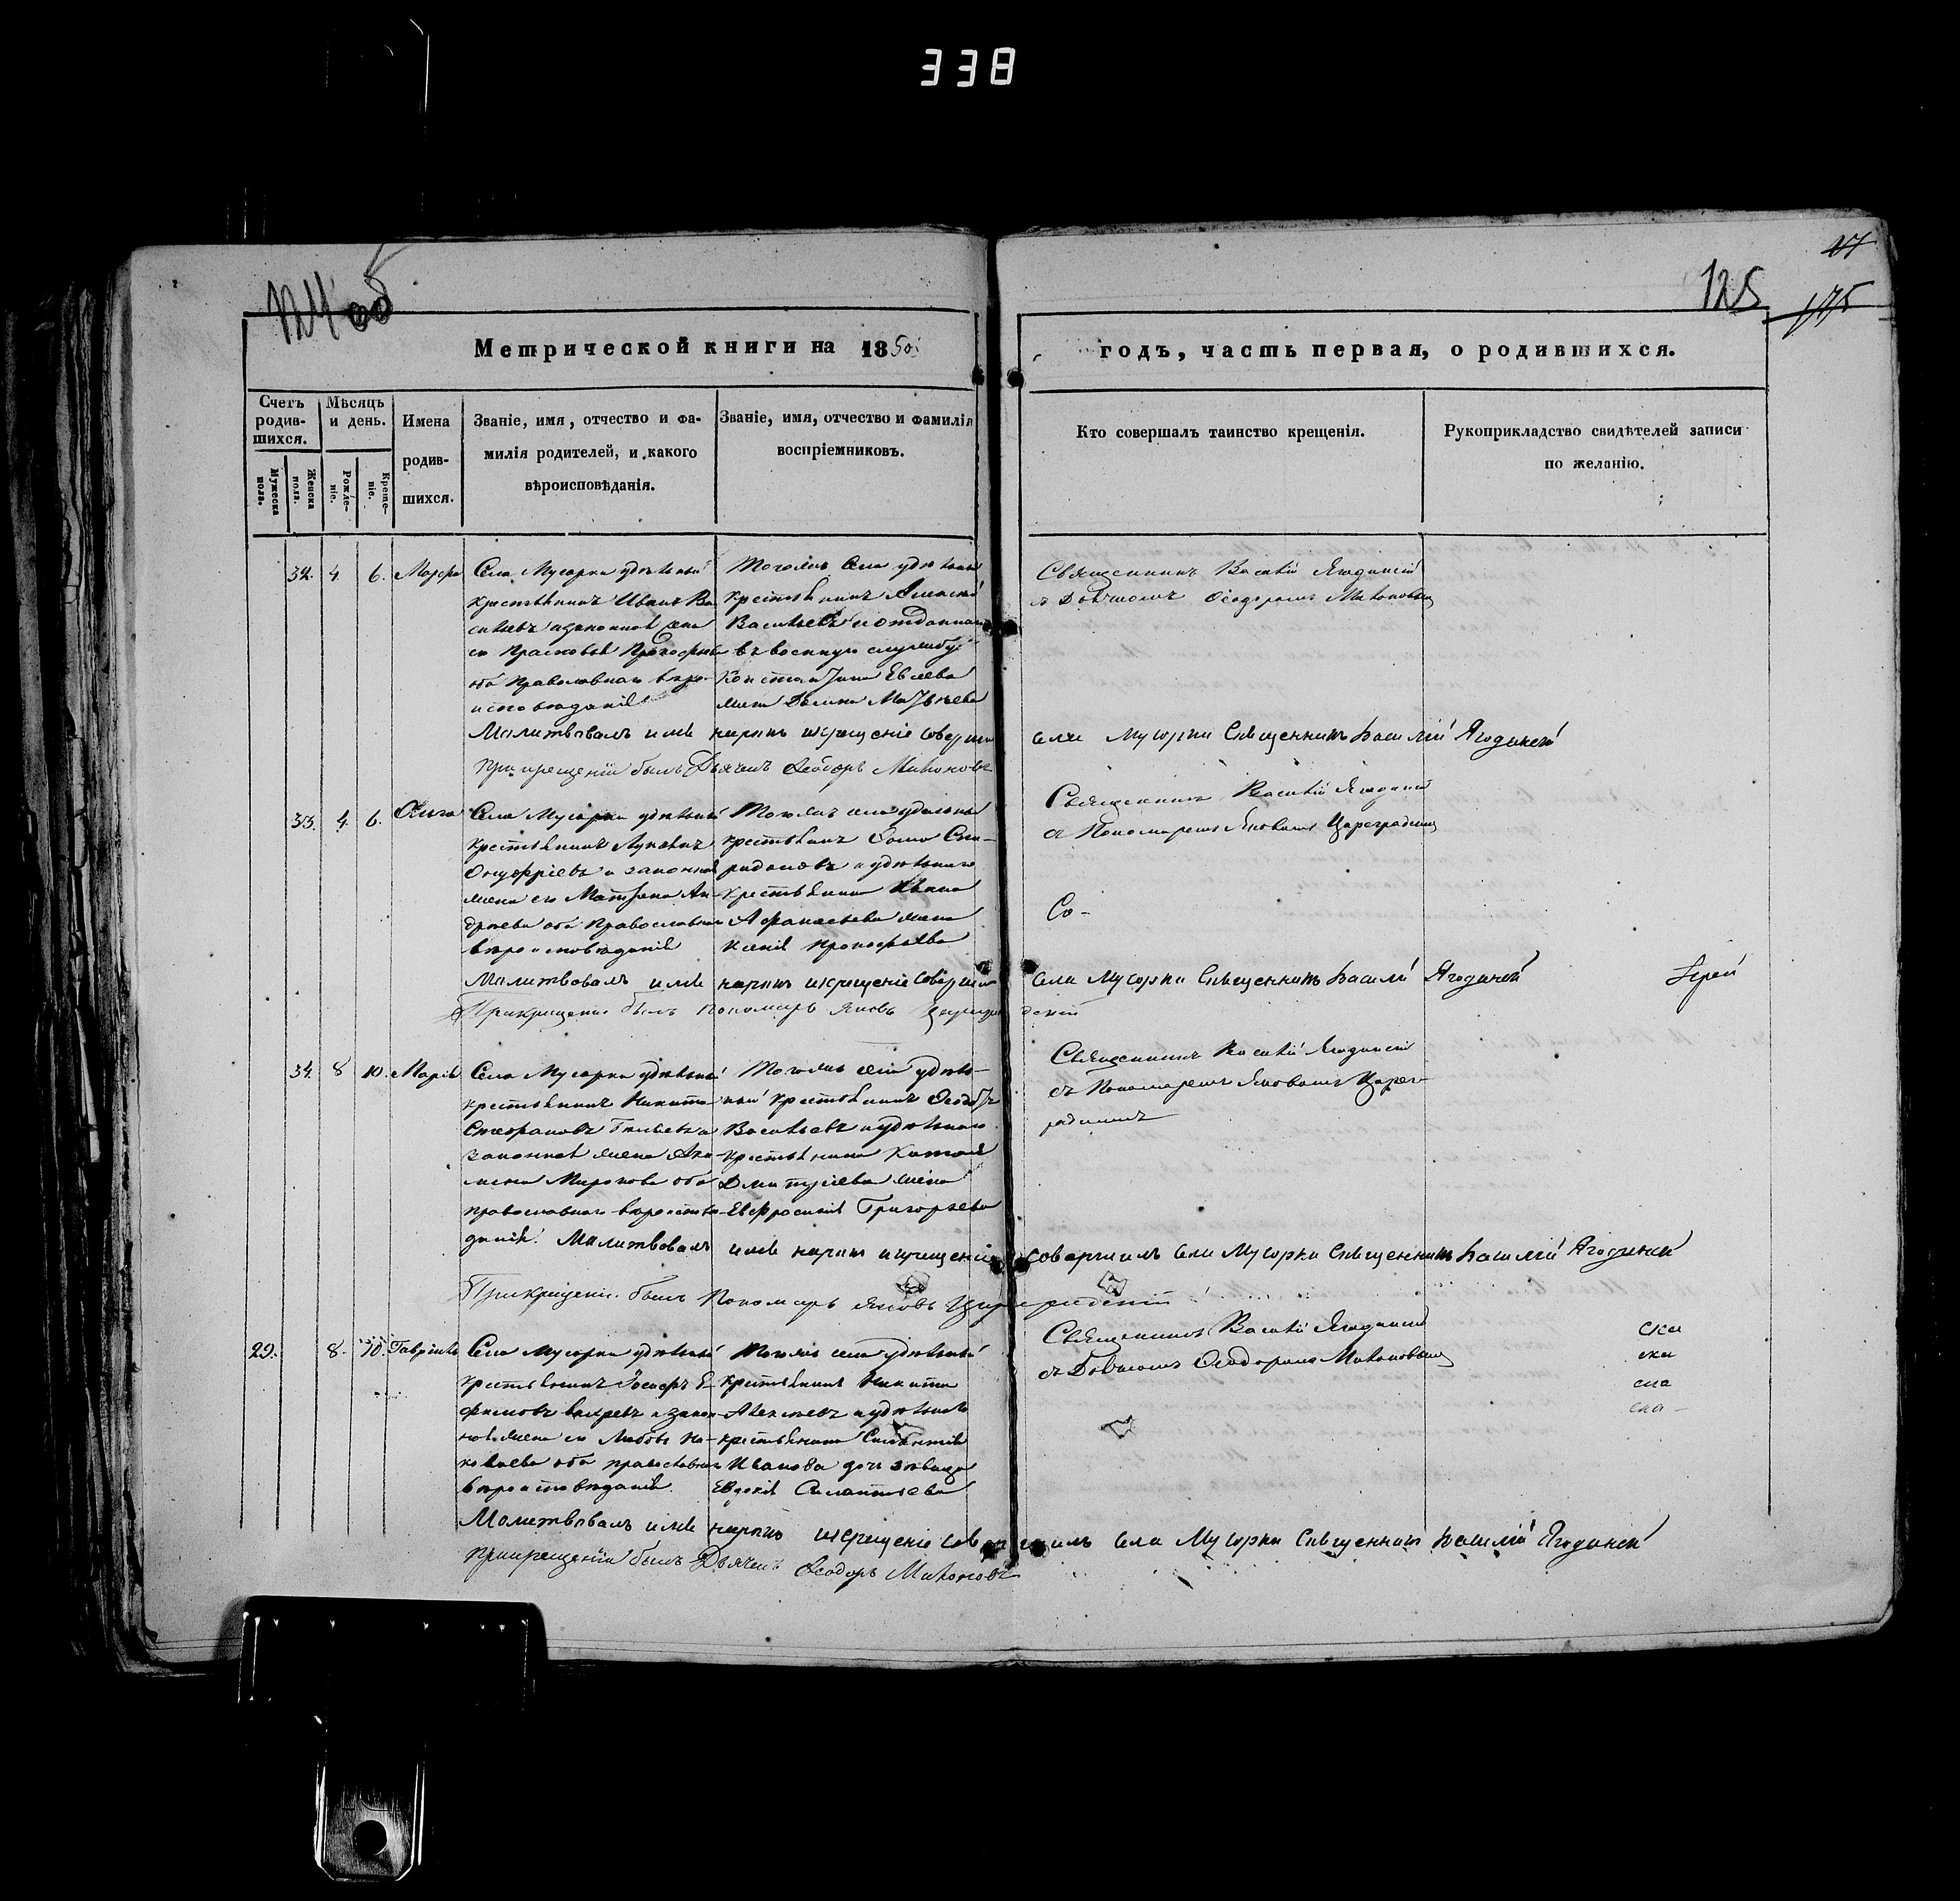 338
124 об
17
125
175
Метрической книги на 1850.
годъ, часть первая, о родившихся.
Счетъ родив-шихся.
Мужеска пола.
Женска пола.
Мѣсяцъ и день.
Рожде-ніе.
Креще-ніе.
Имена родив-шихся.
Званіе, имя, отчество и фа-
милія родителей, и какого
вѣроисповѣданія.
Званіе, имя, отчество и фамилія
воспріемниковъ.
Кто совершалъ таинство крещенія.
Рукоприкладство свидѣтелей записи
по желанію.
32. 4. 6. Марфа
Села Мусорки удѣльный
крестьянинъ Иванъ Ва
сильевъ и законная жена
его Прасковья Прокофьева
оба православнаго вѣро-
исповѣданія
Тогожъ села удѣльный
крестьянинъ Алексѣй
Васильевъ и отданнаго
въ военную службу
Константина Евсеева
жена Дарья Матвѣева
Священникъ Василій Ягодинскій
съ Дьячкомъ Ѳеодоромъ
Малитвовалъ имя нарекъ и крещеніе совершилъ села Мусорки Священникъ Василій Ягодинскій
При крещеніи былъ Дьячекъ Ѳеодоръ
33. 4. 6. Ольга
Села Мусорки удѣльный
крестьянинъ
Онуфріевъ и законная
жена его Матрена Ан-
дреева оба Православнаго
вѣроисповѣданія
Тогожъ села удѣльный
крестьянинъ Ѳома Спи-
ридоновъ и удѣльнаго
крестьянина Ивана
Афанасьева жена
Ксенія Прокофьева
Священникъ Василій Ягодинскій
съ Пономаремъ Яковомъ Цареградскимъ
Со-
Малитвовалъ имя нарекъ и крещеніе совершилъ села Мусорки Священникъ Василій Ягодинскій Іерей
При крещеніи былъ пономарь Яковъ Цареградскій
34. 8 10. Марія
Села Мусорки удѣльный
крестьянинъ Никита
Стефановъ и
законная жена Аку-
лина Миронова оба
православнаго вѣроисповѣ-
данія.
Тогожъ села удѣль-
ный крестьянинъ Ѳеодоръ
Васильевъ и удѣльнаго
крестьянина
Дмитріева жена
Евфросинія Григорьева
Священникъ Василій Ягодинскій
съ Пономаремъ Яковомъ Царег-
радскимъ
Малитвовалъ имя нарекъ и крещеніе совершилъ села Мусорки Священникъ Василій Ягодинскій
При крещеніи былъ Пономарь Яковъ Цареградскій
29. 8. 10. Гавріилъ
Села Мусорки удѣльный
крестьянинъ Іосифъ Е-
фимовъ и закон-
ная жена его Любовь Ни-
колаева оба православнаго
вѣроисповѣданія.
Тогожъ села удѣльный
крестьянинъ Никита
Алексѣевъ и удѣльнаго
крестьянина Силантія
Иванова дочь дѣвица
Евдокія Силантьева
Священникъ Василій Ягодинскій
съ Дьячкомъ Ѳеодоромъ
ска
ска
ска
ска-
Молитвовалъ имя нарекъ и крещеніе совершилъ села Мусорки Священникъ Василій Ягодинскій
При крещеніи былъ Дьячекъ Ѳеодоръ